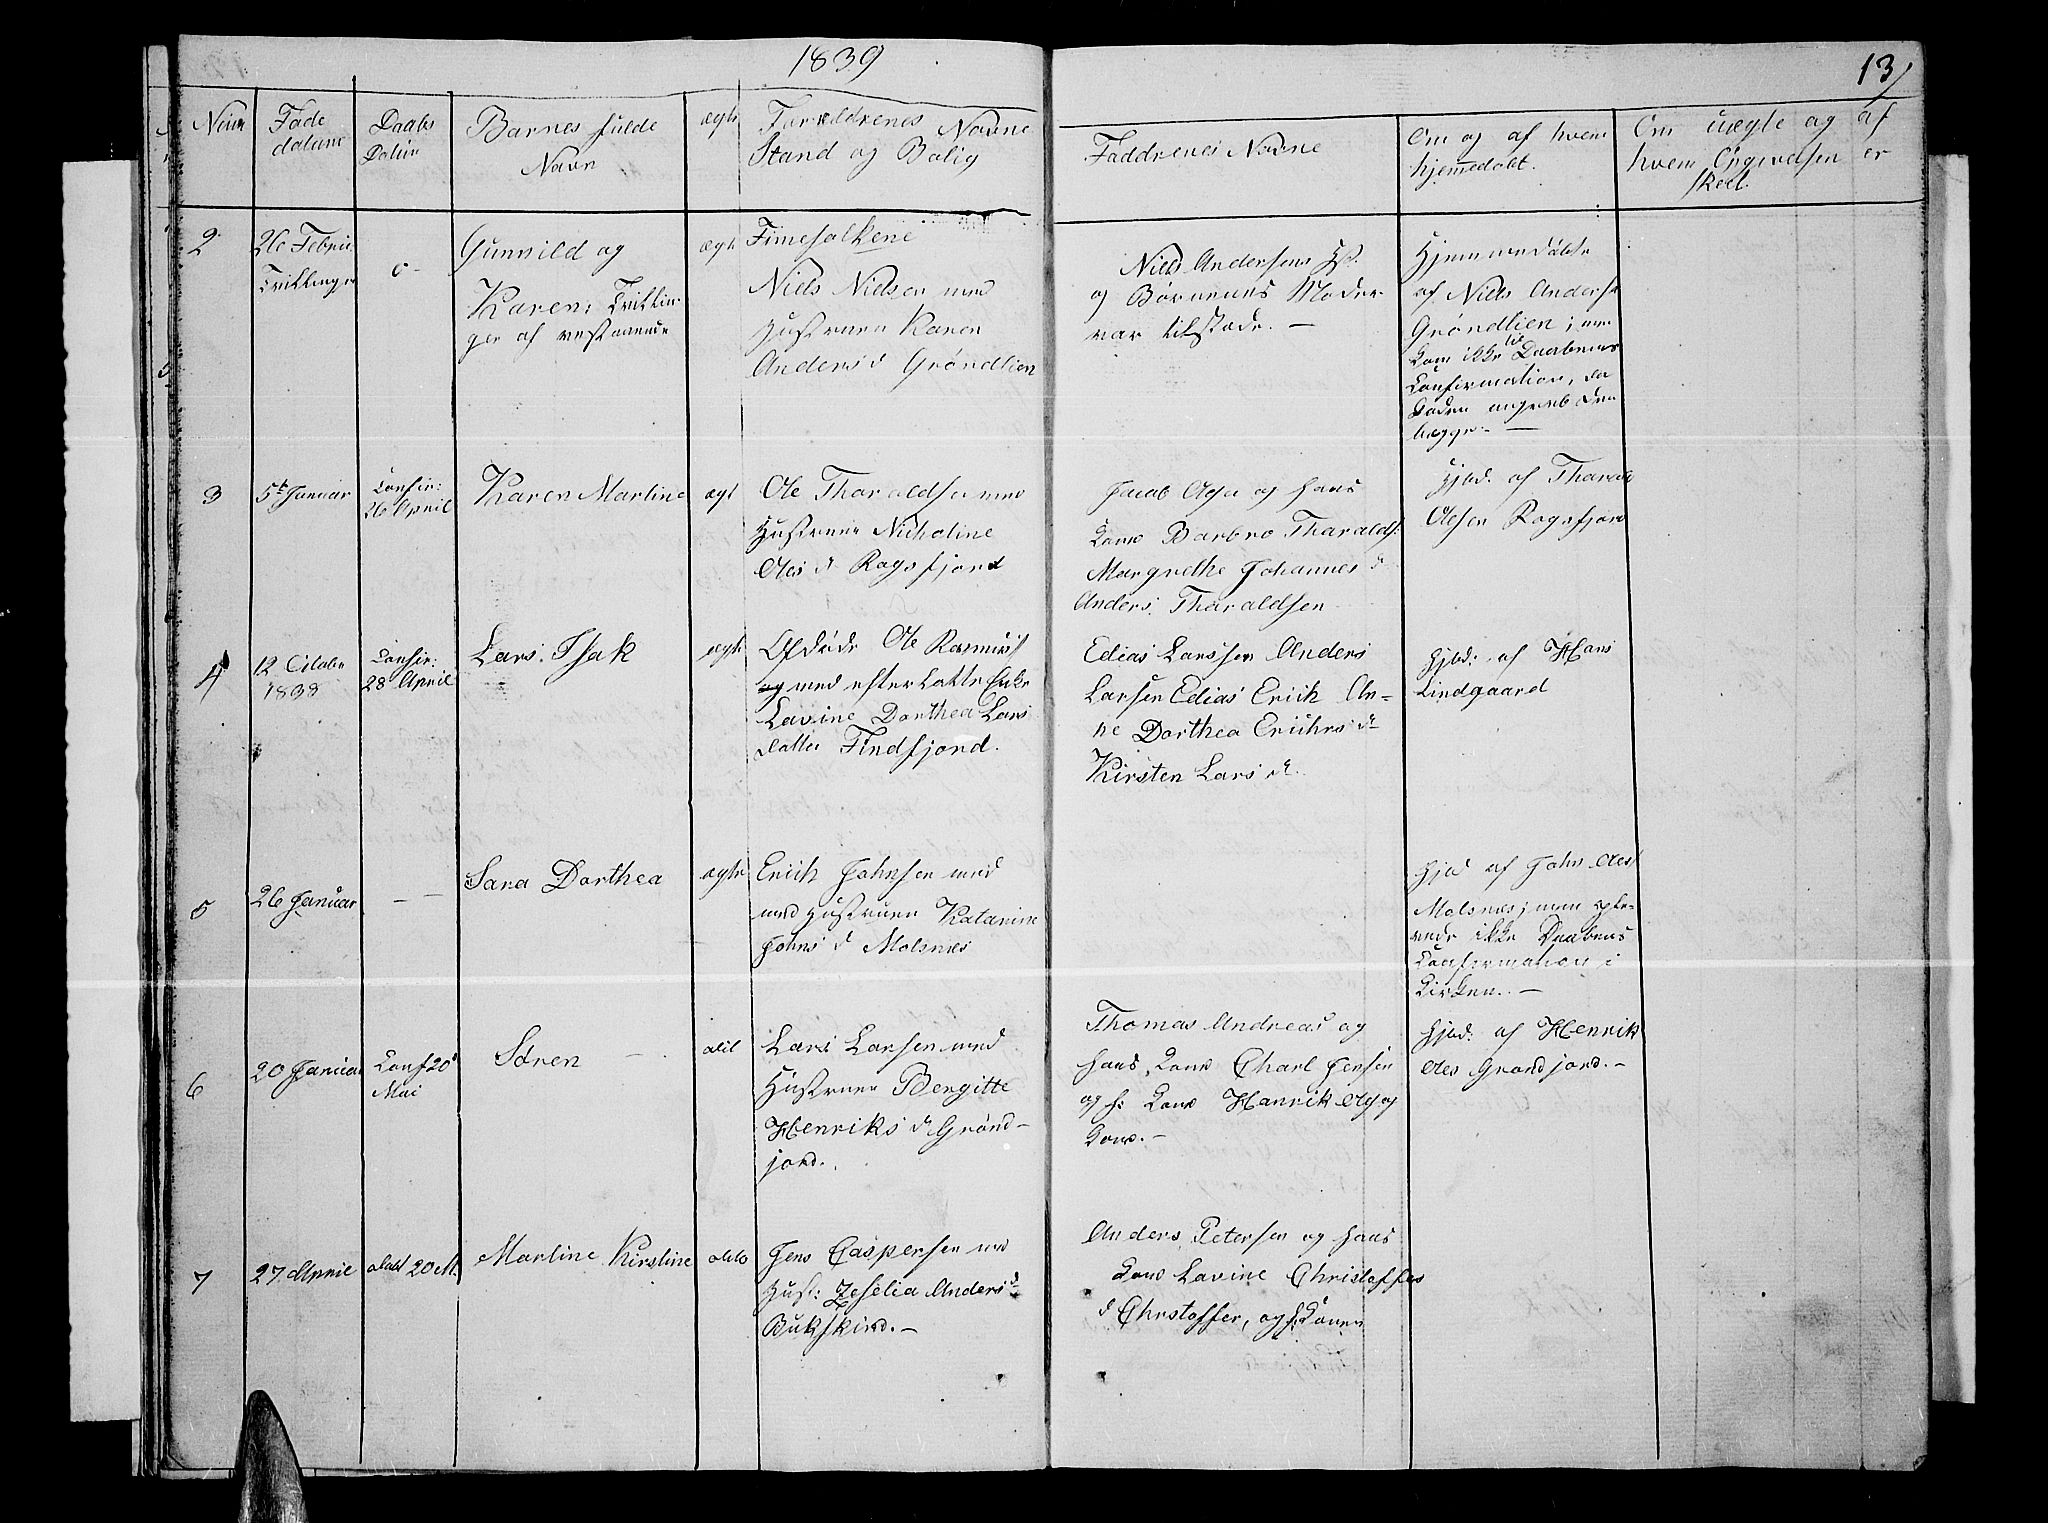 1839
13
Føde
datum
Daabs
Datum
Barnes fulde
Navn
ægte
Forældrenes Navne
Stand og Bolig
Faddrenes Navne
Om og af hvem
hjemmedøbt.
Om uægte og af
hvem Opgivelsen er
skeet.
2
26 Februar
Trillinger
0 -
Gunnild og
Karen,
ger af
ægte
Niels Nielsen med
Hustruen Karen
Anders d Grøndlien
Niels Andersens H.
og Børnenes Moder
var tilstede. —
Hjemmedøbte
af Niels Anders
Grøndlien; men
kom ikke til Daabens
Confirmation, da
Døden angreb dem
begge. —
3
5t Januar
Confir:
26 April
Karen Martine
ægt
Ole Tharaldsen med
Hustruen Nicholine
Oles d Rogsfjord
Jacob og hans
Kone Barbro Tharalds.
Margrethe Johannes d
Anders Tharaldsen
Hjbd. af Tharald
Olsen Rogsfjord
4
12 Octobr
1838
Confir:
28 April
Lars Isak
ægte
Afdøde Ole Rasmus
og med efterladte Enke
Lavine Dorthea Lars
datter Findfjord.
Edias Larssen Anders
Larsen Edias Erich An-
ne Dorthea Erichs d
Kirsten Lars d.
Hjbd: af Hans
Lindgaard
5
26 Januar
— —
Sara Dorthea
ægte
Erich Johnsen med
med Hustruen Katarine
Johns d Molsnæs
Hjbd af John Oles
Molsnæs; men ople-
vede ikke Daabens
Confirmation i
Kirken. —
6
20 Januar
Conf 20
Mai
Søren —
Lars Larsen med
Hustruen Bergitte
Henriks d Grønd-
jord.
Thomas Andreas og
hans Kone Charl Jensen
og h: Kone Henrik og
Kone. —
Hjbd. af Henrik
Oles Grøndjord. —
7
27 April
døbt 20 M.
Martine Kirstine
dito
Jens Caspersen med
Hust: Zeselia Anders d
Bukskind. —
Anders Petersen og hans
Kone Lavine Christoffers
d Christoffer, og h. Konen